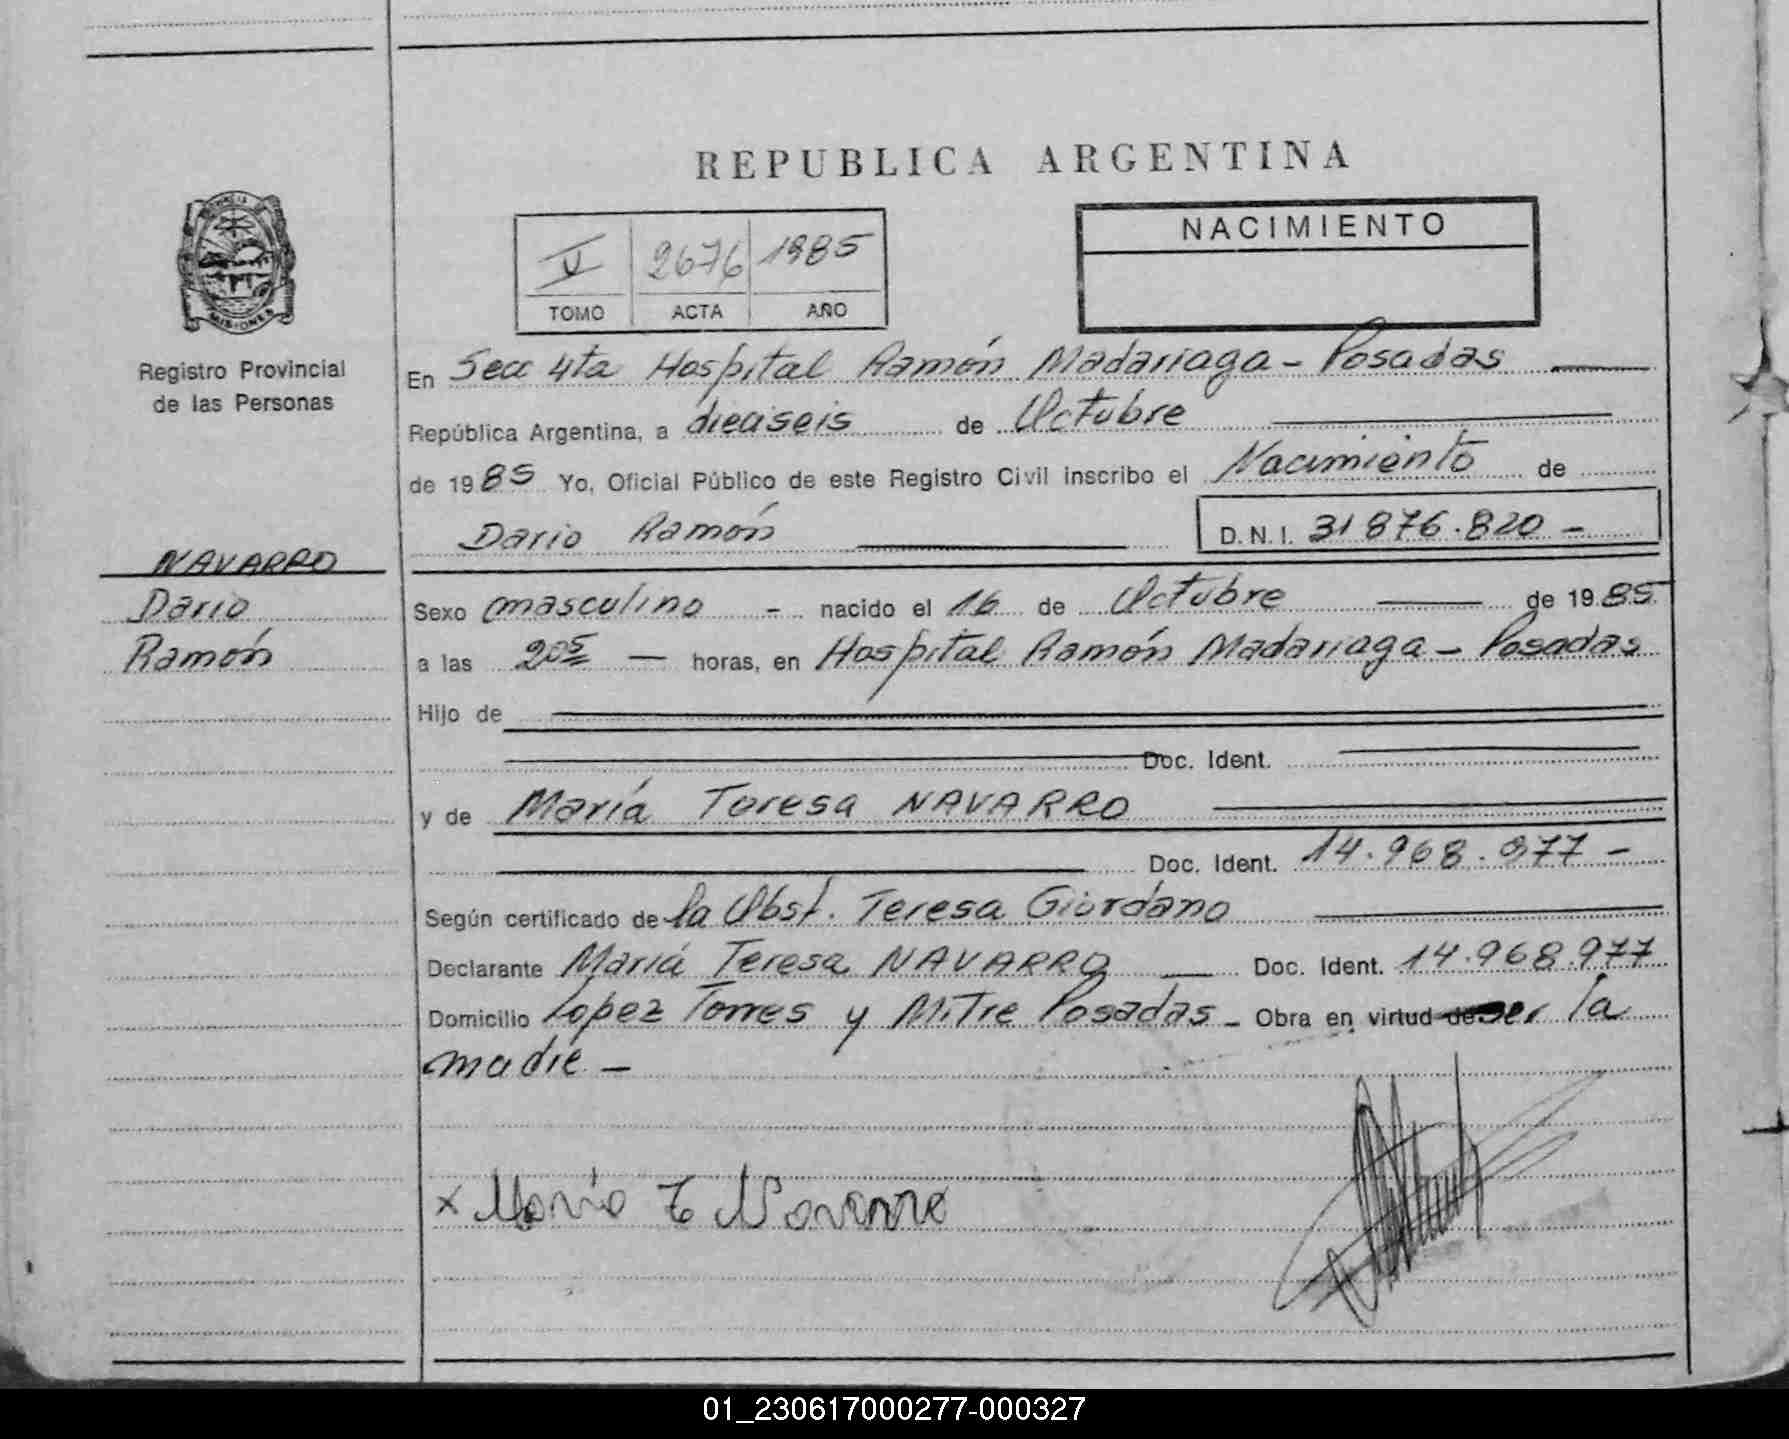 REPUBLICA ARGENTINA
NACIMIENTO
V 2676 1985
TOMO ACTA AÑO
PROVINCIA
MISIONES
Registro Provincial
de las Personas
En Secc 4ta Hospital Ramón Madariaga - Posadas
República Argentina, a dieciseis de Octubre
de 1985 Yo, Oficial Público de este Registro Civil inscribo el Nacimiento de
Dario Ramón D.N.I. 31 876.820 -
NAVARRO
Dario
Ramón
Sexo masculino - nacido el 16 de Octubre de 1985
a las 205 — horas, en Hospital Ramón Madariaga - Posadas
Hijo de
Doc. Ident.
y de María Teresa NAVARRO
Doc. Ident. 14.968.977 -
Según certificado de la Obst. Teresa Giordano
Declarante María Teresa NAVARRO — Doc. Ident. 14.968.977
Domicilio Lopez Torres y Mitre Posadas - Obra en virtud de ser la
madre -
x Maria T Navarro
01_230617000277-000327